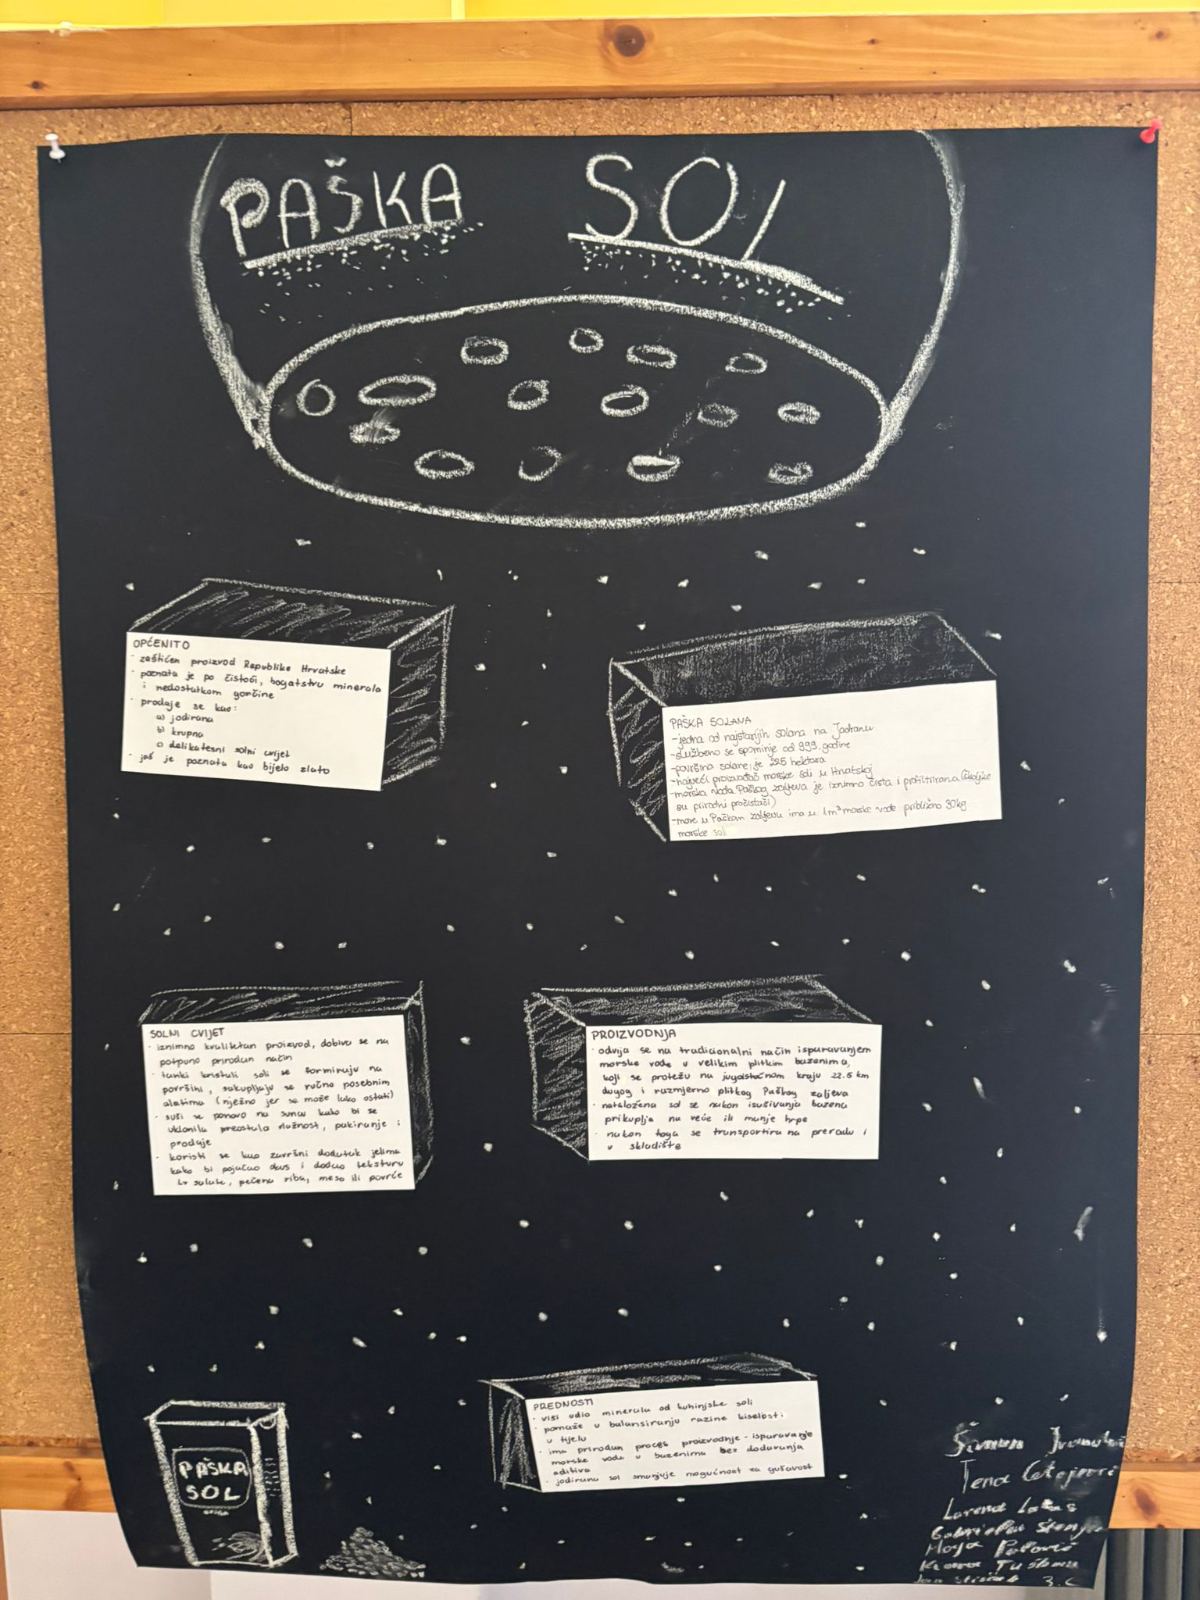 PAŠKA SOL
OPĆENITO
- zaštićen proizvod Republike Hrvatske
- poznata je po čistoći, bogatstvu minerala
i nedostatkom gorčine
- prodaje se kao:
a) jodirana
b) krupna
c) delikatesni solni cvijet
- još je poznata kao bijelo zlato
PAŠKA SOLANA
-jedna od najstarijih solana na Jadranu
-službeno se spominje od 999. godine
-površina solane je 225 hektara
-najveći proizvođač morske soli u Hrvatskoj
-morska voda Paškog zaljeva je iznimno čista i profiltrirana (školjke
su prirodni pročistači)
-more u Paškom zaljevu ima u 1m³ morske vode približno 30kg
morske soli
SOLNI CVIJET
- iznimno kvalitetan proizvod, dobiva se na
potpuno prirodan način
- tanki kristali soli se formiraju na
površini, sakupljaju se ručno posebnim
alatima (nježno jer se može lako ostati)
- suši se ponovo na suncu kako bi se
uklonila preostala vlažnost, pakiranje i
prodaje
- koristi se kao završni dodatak jelima
kako bi pojačao okus i dodao teksturu
↳ salate, pečena riba, meso ili povrće
PROIZVODNJA
- odvija se na tradicionalni način isparavanjem
morske vode u velikim plitkim bazenima,
koji se protežu na jugoistočnom kraju 22.5 km
dugog i razmjerno plitkog Paškog zaljeva
- nataložena sol se nakon isušivanja bazena
prikuplja na veće ili manje hrpe
- nakon toga se transportira na preradu i
u skladište
PREDNOSTI
- viši udio minerala od kuhinjske soli
- pomaže u balansiranju razine kiselosti
u tijelu
- ima prirodan proces proizvodnje - isparavanje
morske vode u bazenima bez dodavanja
aditiva
- jodirana sol smanjuje mogućnost za gušavost
PAŠKA
SOL
Tena
Lorena
3.c